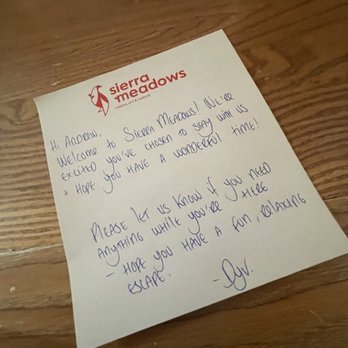 sierra
meadows
Hi Andrew,
Welcome to Sierra Meadows! We're
excited you've chosen to stay with us
+ hope you have a wonderful time!
Please let us know if you need
anything while you're here
- hope you have a fun, relaxing
escape.